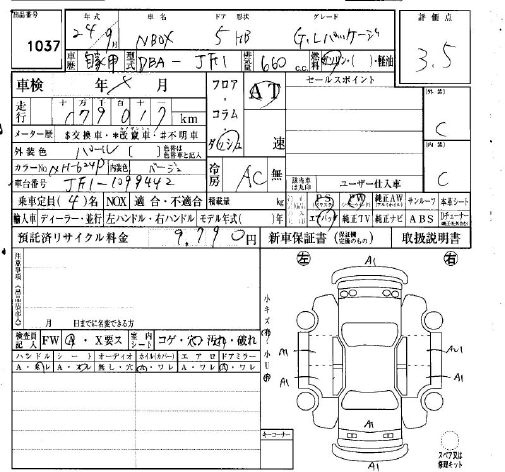 出品番号 1037
年式 車名 ドア 形状 グレード 評価点
24/9月 NBOX 5 HB G.Lパッケージ 3.5
車歴 自家用 型式 DBA-JF1 排気量 660 c.c. 燃料 ガソリン・( )・軽油
車検 年 月
フロア・コラム・ダッシュ
AT 速
セールスポイント
外装 C
走行 十万千百十 179017 km
メーター歴 $交換車・*改竄車・#不明車
外装色 パール [ ] 色替車は色替車と記入
カラーNo NH-624P 内装色 ベージュ
冷房 AC 無
内装 C
車台番号 JF1-1099442
ユーザー仕入車
乗車定員 (4)名 NOX 適合・不適合 積載量 kg
PS PW 純正AW サンルーフ 本革シート
輸入車 ディーラー・並行 左ハンドル・右ハンドル モデル年式( )年
エアバック 純正TV 純正ナビ ABS
預託済リサイクル料金 9,790円 新車保証書 取扱説明書
左 A1 右
注意事項
月 日までに名変できる方
検査員記入 FW A・X要ス 室内シート コゲ・穴・汚れ・破れ
ハンドル シート オーディオ ホイル(カバー) エアロ ドアミラー
A・ワレ 無し・穴 ワレ A・ワレ ワレ
A1
A1 A1
A1
A1
キーコーナー
スペア又は修理キット